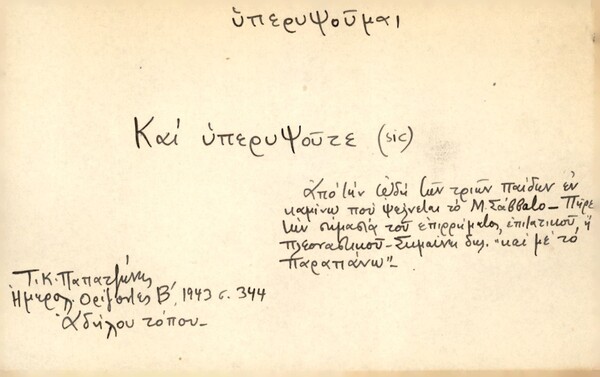 ὑπερυψοῦμαι
Καί ὑπερυψοῦτε (sic)
Ἀπό τήν ᾠδή τῶν τριῶν παίδων ἐν
καμίνῳ πού ψέλνεται τό Μ. Σάββατο – Πῆρε
τήν σημασία τοῦ ἐπιρρήματος, ἐπιτατικοῦ, ἤ
πλεοναστικοῦ – Σημαίνει δηλ. "καί μέ τό
παραπάνω" –
Τ. Κ. Παπατζώνης
Ἡμερολ. Ὁρίζοντες Β', 1943 σ. 344
Ἀδήλου τόπου –